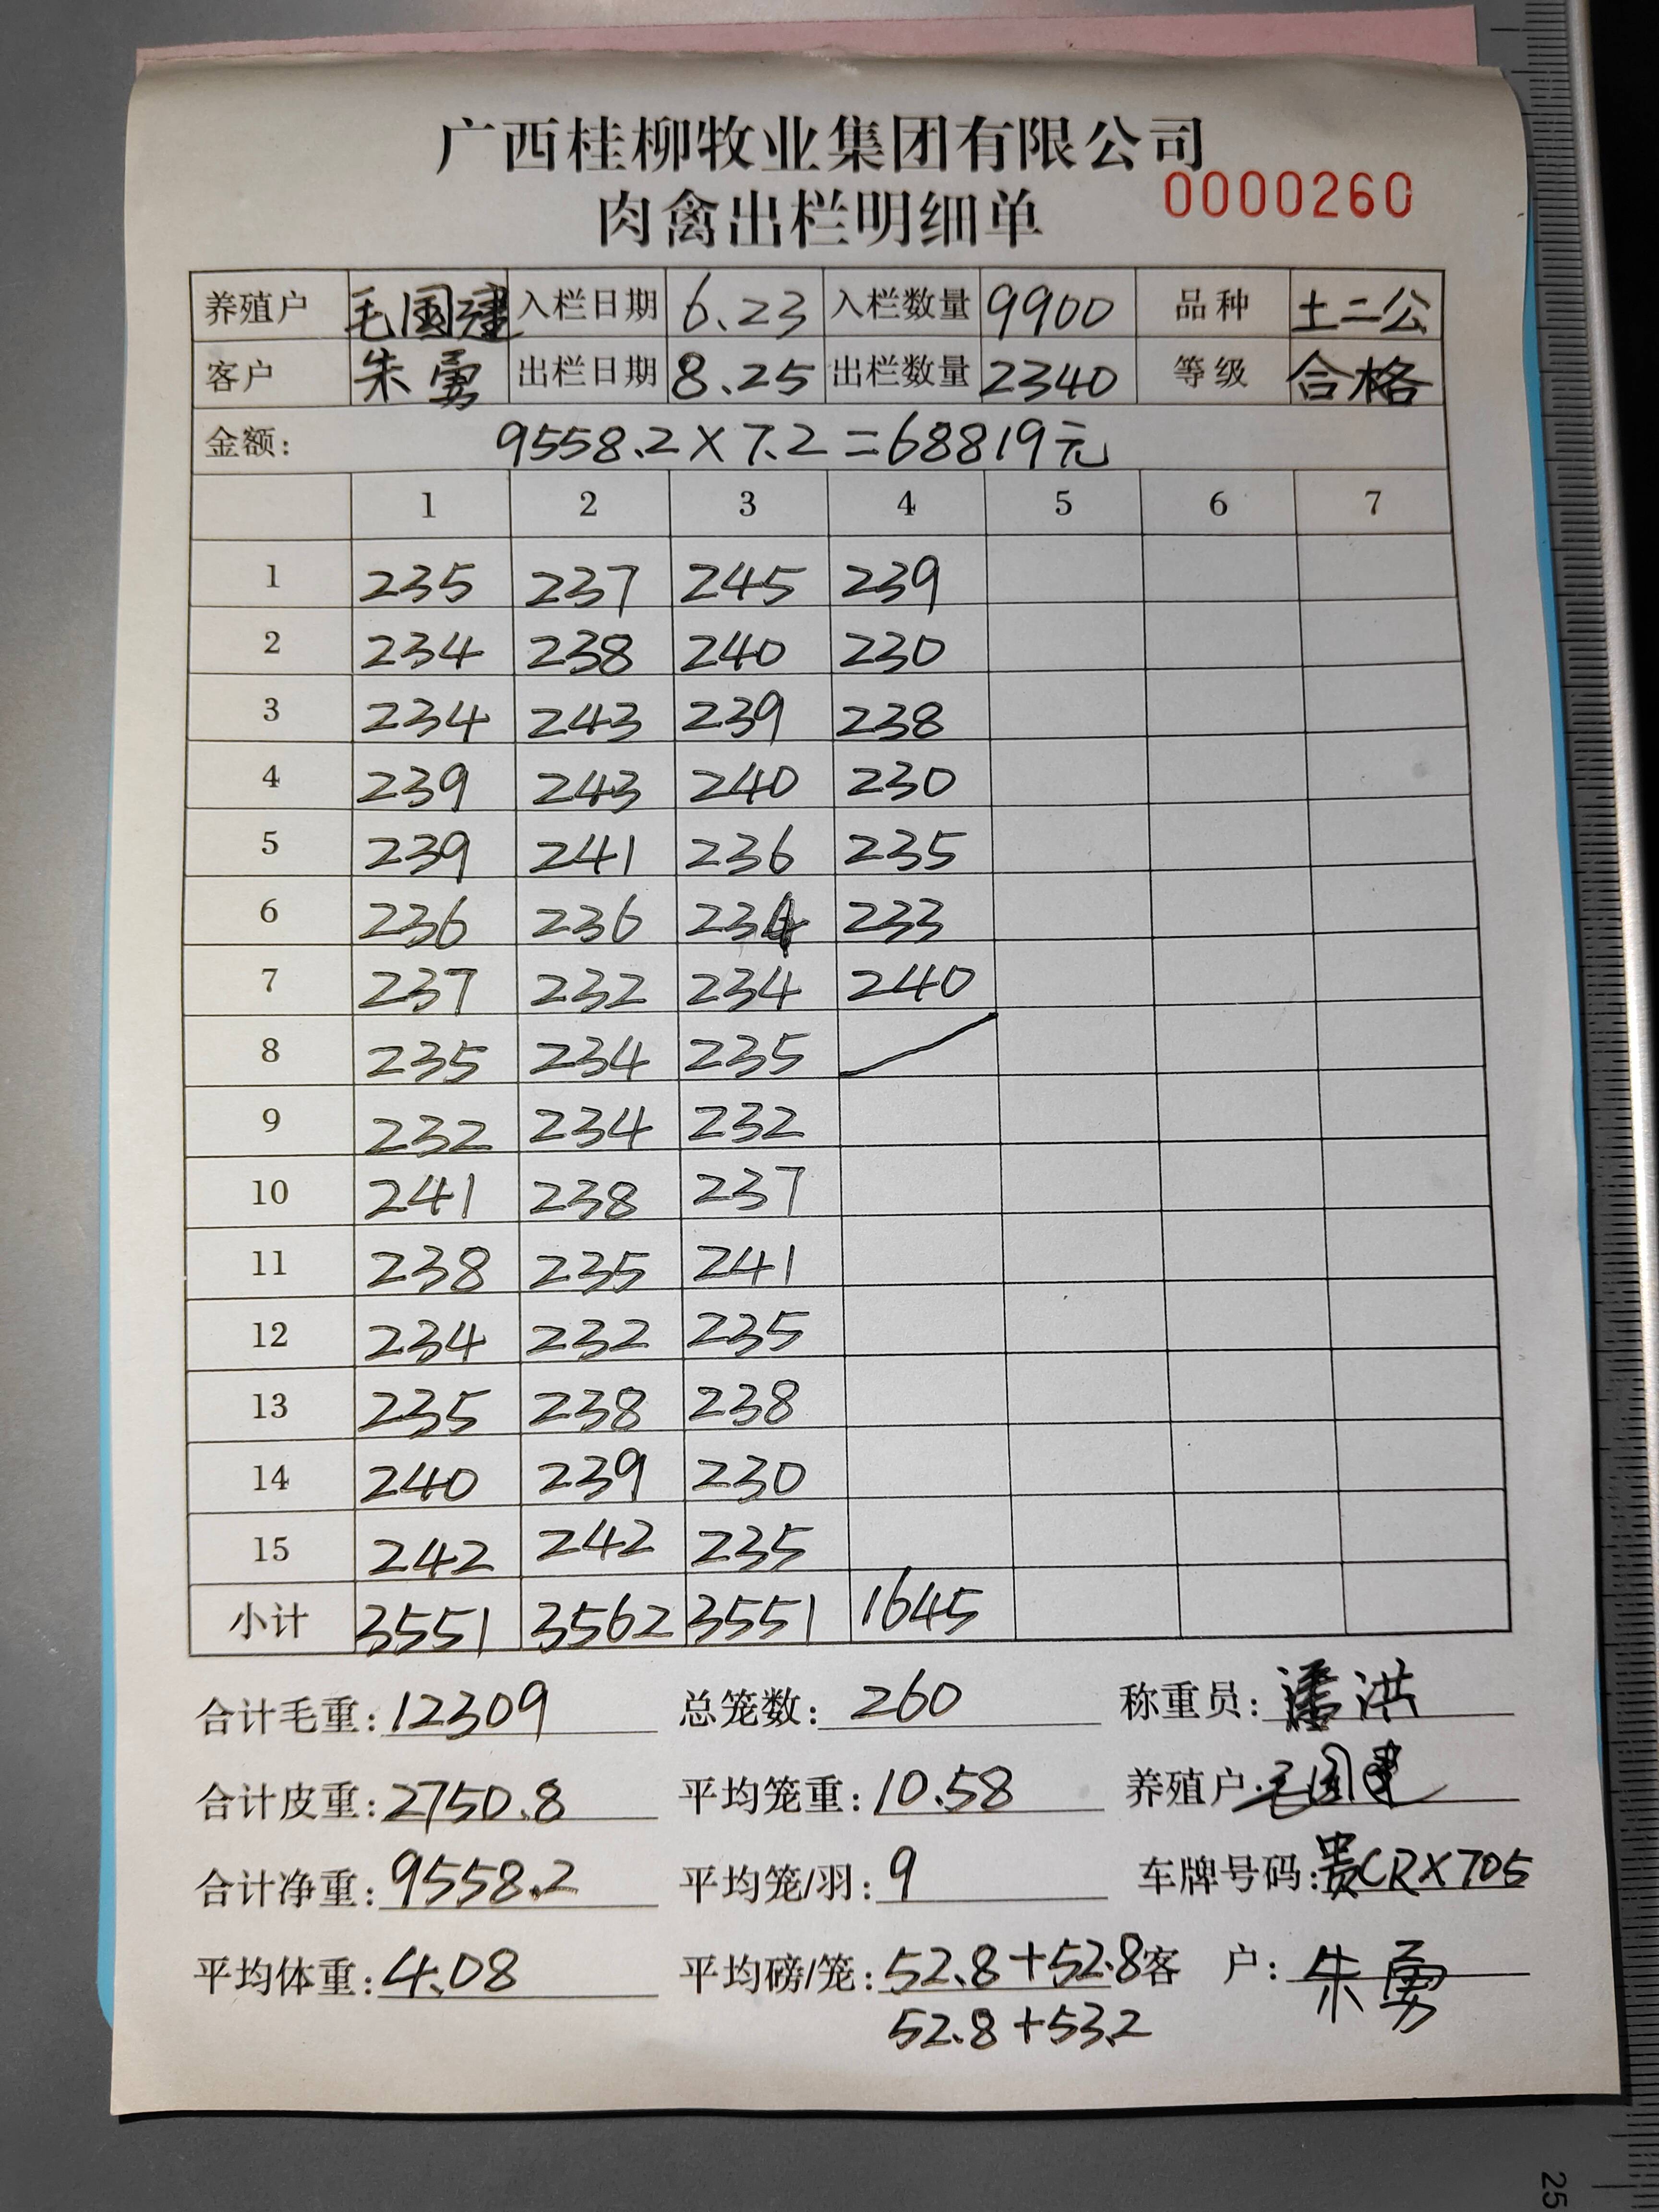 广西桂柳牧业集团有限公司
肉禽出栏明细单 0000260
养殖户 毛国建 入栏日期 6.23 入栏数量 9900 品种 土二公
客户 朱勇 出栏日期 8.25 出栏数量 2340 等级 合格
金额: 9558.2×7.2=68819元
1 2 3 4 5 6 7
1 235 237 245 239
2 234 238 240 230
3 234 243 239 238
4 239 243 240 230
5 239 241 236 235
6 236 236 234 233
7 237 232 234 240
8 235 234 235
9 232 234 232
10 241 238 237
11 238 235 241
12 234 232 235
13 235 238 238
14 240 239 230
15 242 242 235
小计 3551 3562 3551 1645
合计毛重:12309 总笼数:260 称重员:潘洪
合计皮重:2750.8 平均笼重:10.58 养殖户:毛国建
合计净重:9558.2 平均笼/羽:9 车牌号码:贵CRX705
平均体重:4.08 平均磅/笼:52.8+52.8 客 户:朱勇
52.8+53.2
25